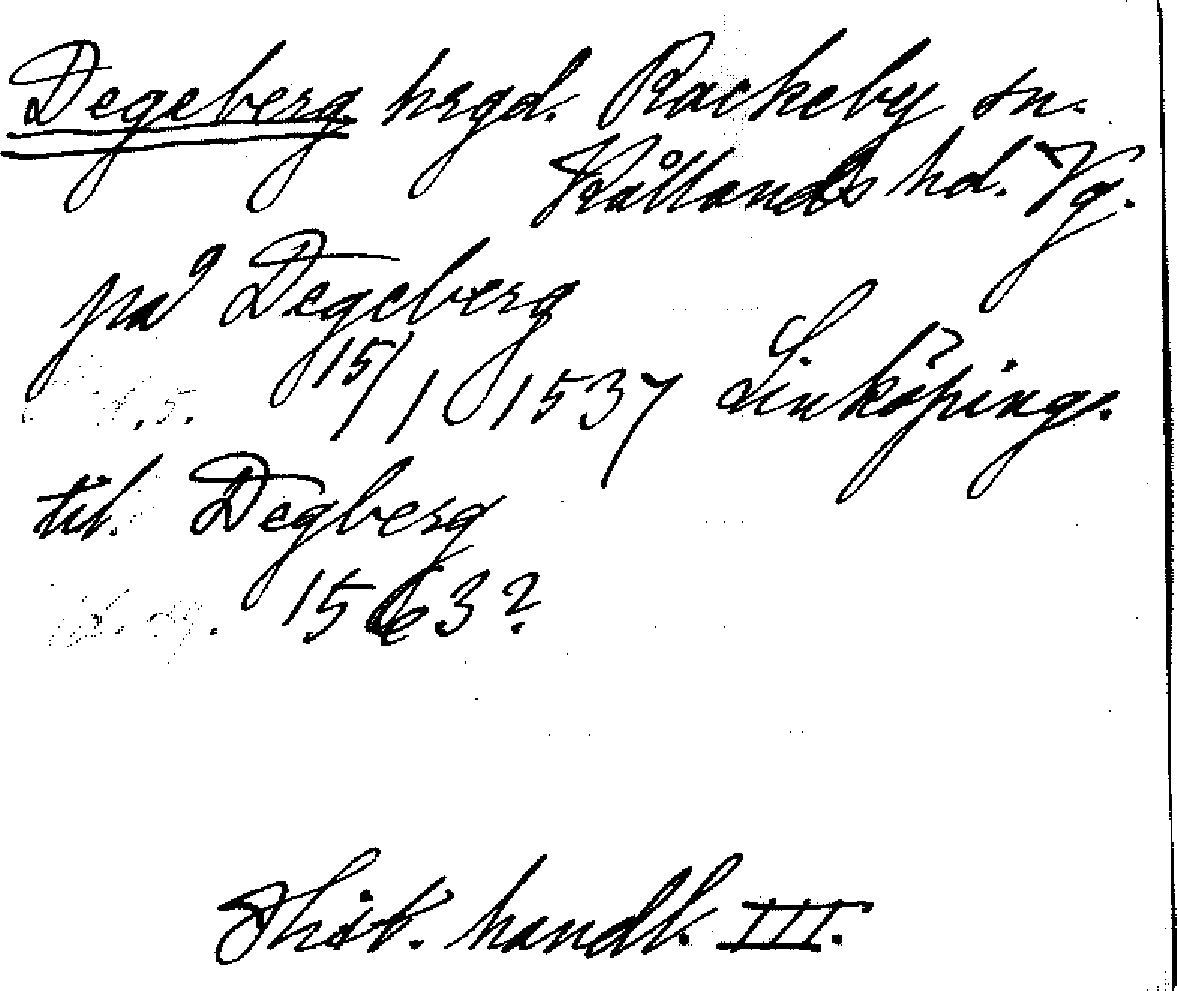 Degeberg hrgd. Rackeby sn.
Kållands hd. Vg.
på Degeberg
15/1 1537 Linköping.
s. 5.
til. Degberg
1563?
Hist. handl. III.